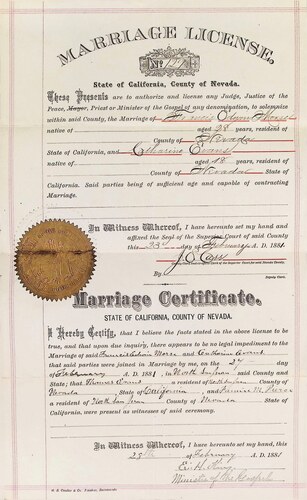 MARRIAGE LICENSE,
No.
State of California, County of Nevada.
These Presents are to authorize and license any Judge, Justice of the
Peace, Mayor, Priest or Minister of the Gospel of any denomination, to solemnize
within said County, the Marriage of Francis Edwin Morse
native of aged 28 years, resident of
County of Nevada
State of California, and Catharine Evans
native of aged 18 years, resident of
County of Nevada State of
California. Said parties being of sufficient age and capable of contracting
Marriage.
In Witness Whereof, I have hereunto set my hand and
affixed the Seal of the Superior Court of said County
this 23d of February A. D. 1881
By
Deputy Clerk.
Marriage Certificate.
STATE OF CALIFORNIA, COUNTY OF NEVADA.
I Hereby Certify, that I believe the facts stated in the above license to be
true, and that upon due inquiry, there appears to be no legal impediment to the
Marriage of said Francis Edwin Morse and Catharine Evans
that said parties were joined in Marriage by me, on the 24 day
of February A. D. 1881, in North San Juan said County and
State; that Thomas Evans a resident of County of
Nevada State of California, and
a resident of North San Juan County of Nevada State of
California, were present as witnesses of said ceremony.
In Witness Whereof, I have hereunto set my hand, this
25th of February A. D. 1881
Minister of the Gospel